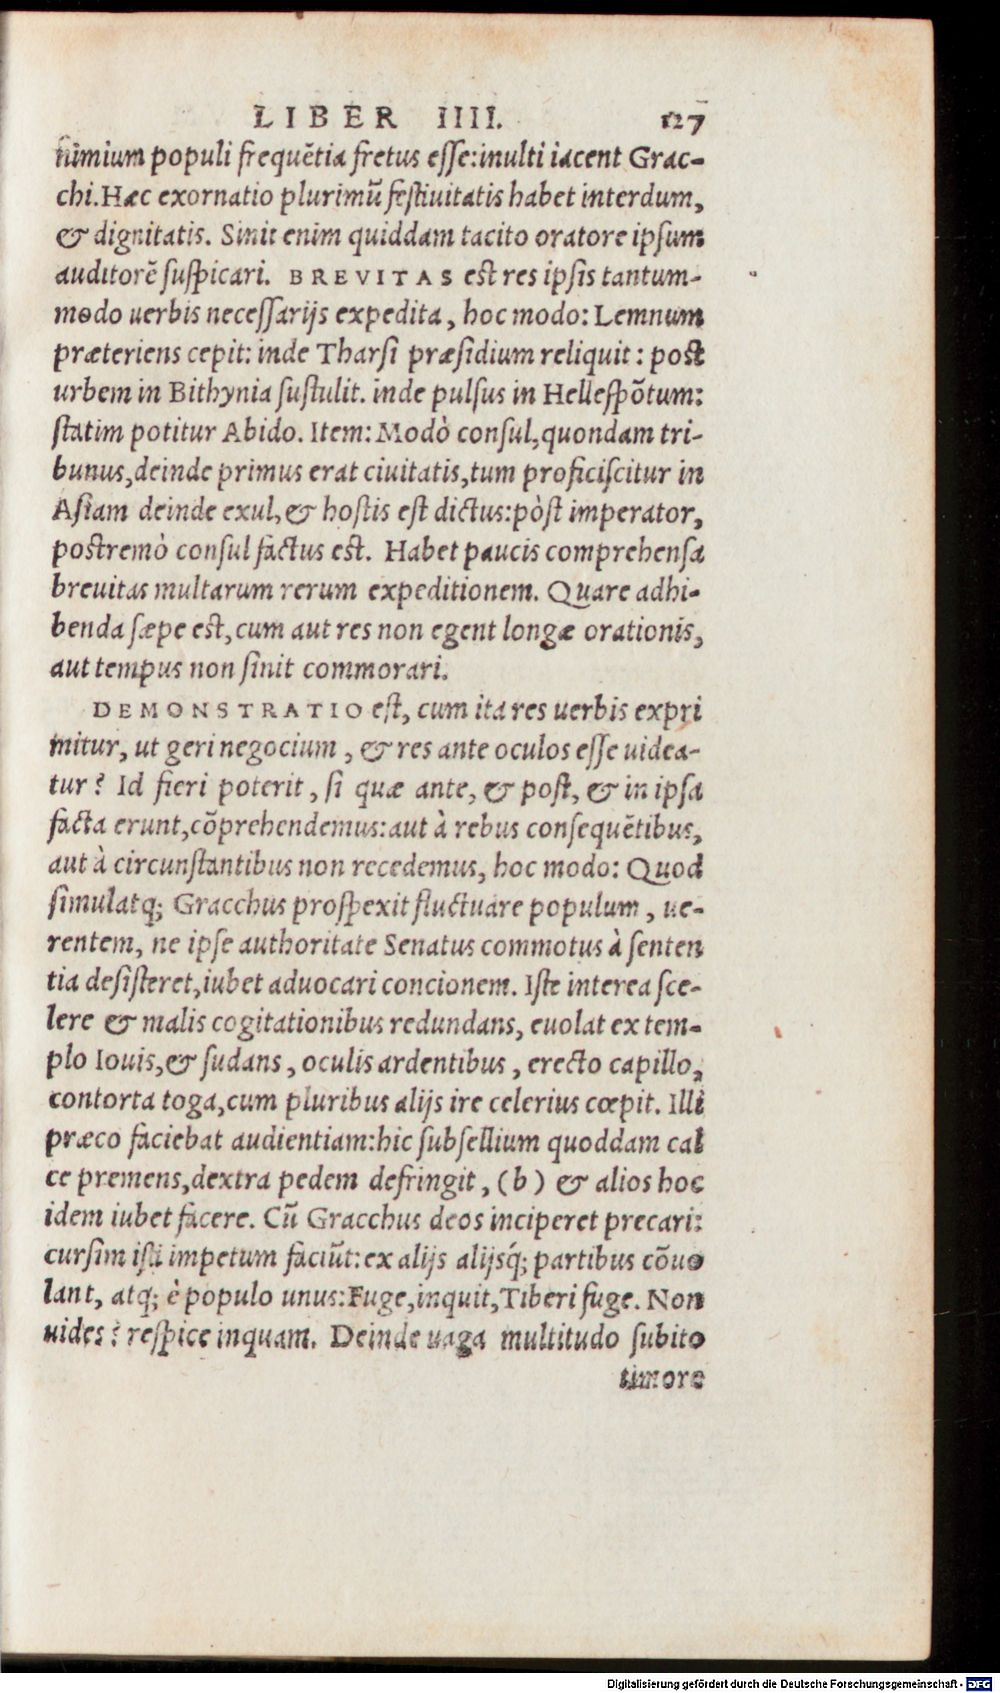 LIBER IIII. 127
nimium populi frequētia fretus esse: inulti iacent Grac-
chi. Hæc exornatio plurimū festiuitatis habet interdum,
& dignitatis. Sinit enim quiddam tacito oratore ipsum
auditorē suspicari. BREVITAS est res ipsis tantum-
modo uerbis necessarijs expedita, hoc modo: Lemnum
præteriens cepit: inde Tharsi præsidium reliquit: post
urbem in Bithynia sustulit. inde pulsus in Hellespōtum:
statim potitur Abido. Item: Modò consul, quondam tri-
bunus, deinde primus erat ciuitatis, tum proficiscitur in
Asiam deinde exul, & hostis est dictus: pòst imperator,
postremò consul factus est. Habet paucis comprehensa
breuitas multarum rerum expeditionem. Quare adhi-
benda sæpe est, cum aut res non egent longæ orationis,
aut tempus non sinit commorari.
DEMONSTRATIO est, cum ita res uerbis expri
mitur, ut geri negocium, & res ante oculos esse uidea-
tur? Id fieri poterit, si quæ ante, & post, & in ipsa
facta erunt, cōprehendemus: aut à rebus consequētibus,
aut à circunstantibus non recedemus, hoc modo: Quod
simulatq; Gracchus prospexit fluctuare populum, ue-
rentem, ne ipse authoritate Senatus commotus à senten
tia desisteret, iubet aduocari concionem. Iste interea sce-
lere & malis cogitationibus redundans, euolat ex tem-
plo Iouis, & sudans, oculis ardentibus, erecto capillo,
contorta toga, cum pluribus alijs ire celerius cœpit. Illi
præco faciebat audientiam: hic subsellium quoddam cal
ce premens, dextra pedem defringit, (b) & alios hoc
idem iubet facere. Cū Gracchus deos inciperet precari:
cursim isti impetum faciūt: ex alijs alijsq́; partibus cōuo
lant, atq; è populo unus: Fuge, inquit, Tiberi fuge. Non
uides? respice inquam. Deinde uaga multitudo subito
timore
Digitalisierung gefördert durch die Deutsche Forschungsgemeinschaft - DFG